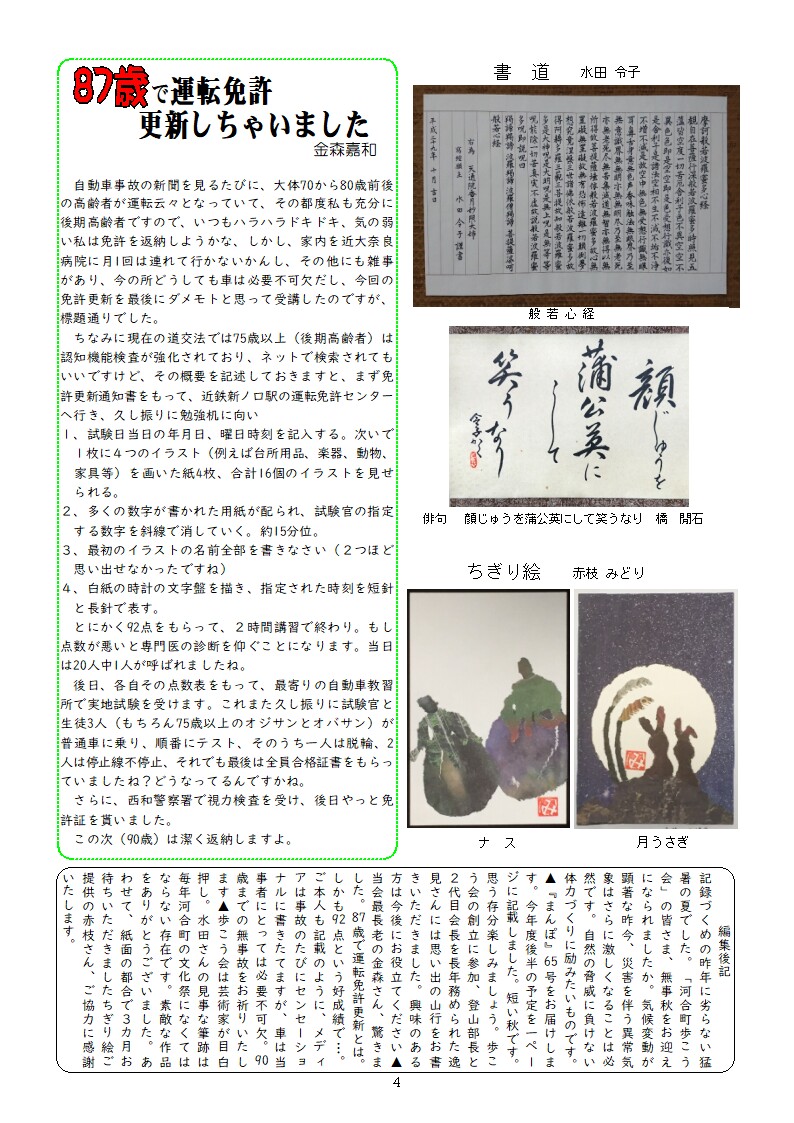 87歳で運転免許
更新しちゃいました
金森嘉和
自動車事故の新聞を見るたびに、大体70から80歳前後
の高齢者が運転云々となっていて、その都度私も充分に
後期高齢者ですので、いつもハラハラドキドキ、気の弱
い私は免許を返納しようかな、しかし、家内を近大奈良
病院に月1回は連れて行かないかんし、その他にも雑事
があり、今の所どうしても車は必要不可欠だし、今回の
免許更新を最後にダメモトと思って受講したのですが、
標題通りでした。
ちなみに現在の道交法では75歳以上（後期高齢者）は
認知機能検査が強化されており、ネットで検索されても
いいですけど、その概要を記述しておきますと、まず免
許更新通知書をもって、近鉄新ノ口駅の運転免許センター
へ行き、久し振りに勉強机に向い
１、試験日当日の年月日、曜日時刻を記入する。次いで
１枚に４つのイラスト（例えば台所用品、楽器、動物、
家具等）を画いた紙4枚、合計16個のイラストを見せ
られる。
２、多くの数字が書かれた用紙が配られ、試験官の指定
する数字を斜線で消していく。約15分位。
３、最初のイラストの名前全部を書きなさい（２つほど
思い出せなかったですね）
４、白紙の時計の文字盤を描き、指定された時刻を短針
と長針で表す。
とにかく92点をもらって、２時間講習で終わり。もし
点数が悪いと専門医の診断を仰ぐことになります。当日
は20人中1人が呼ばれましたね。
後日、各自その点数表をもって、最寄りの自動車教習
所で実地試験を受けます。これまた久し振りに試験官と
生徒3人（もちろん75歳以上のオジサンとオバサン）が
普通車に乗り、順番にテスト、そのうち一人は脱輪、2
人は停止線不停止、それでも最後は全員合格証書をもらっ
ていましたね？どうなってるんですかね。
さらに、西和警察署で視力検査を受け、後日やっと免
許証を貰いました。
この次（90歳）は潔く返納しますよ。
書 道 水田 令子
摩訶般若波羅蜜多心経
般若心経
平成二十九年 十月 吉日
般 若 心 経
顔じゅうを
蒲公英に
して
笑うなり
俳句 顔じゅうを蒲公英にして笑うなり 橋 閒石
ちぎり絵 赤枝 みどり
み
み
ナ ス
月うさぎ
編集後記
記録づくめの昨年に劣らない猛
暑の夏でした。「河合町歩こう
会」の皆さま、無事秋をお迎え
になられましたか。気候変動が
顕著な昨今、災害を伴う異常気
象はさらに激しくなることは必
然です。自然の脅威に負けない
体力づくりに励みたいものです。
▲『まんぽ』65号をお届けしま
す。今年度後半の予定を一ペー
ジに記載しました。短い秋です。
思う存分楽しみましょう。歩こ
う会の創立に参加、登山部長と
２代目会長を長年務められた逸
見さんには思い出の山行をお書
きいただきました。興味のある
方は今後にお役立てください▲
当会最長老の金森さん、驚きま
した。87歳で運転免許更新とは。
しかも92点という好成績で…。
ご本人も記載のように、メディ
アは事故のたびにセンセーショ
ナルに書きたてますが、車は当
事者にとっては必要不可欠。90
歳までの無事故をお祈りいたし
ます▲歩こう会は芸術家が目白
押し。水田さんの見事な筆跡は
毎年河合町の文化祭になくては
ならない存在です。素敵な作品
をありがとうございました。あ
わせて、紙面の都合で３カ月お
待ちいただきましたちぎり絵ご
提供の赤枝さん、ご協力に感謝
いたします。
4